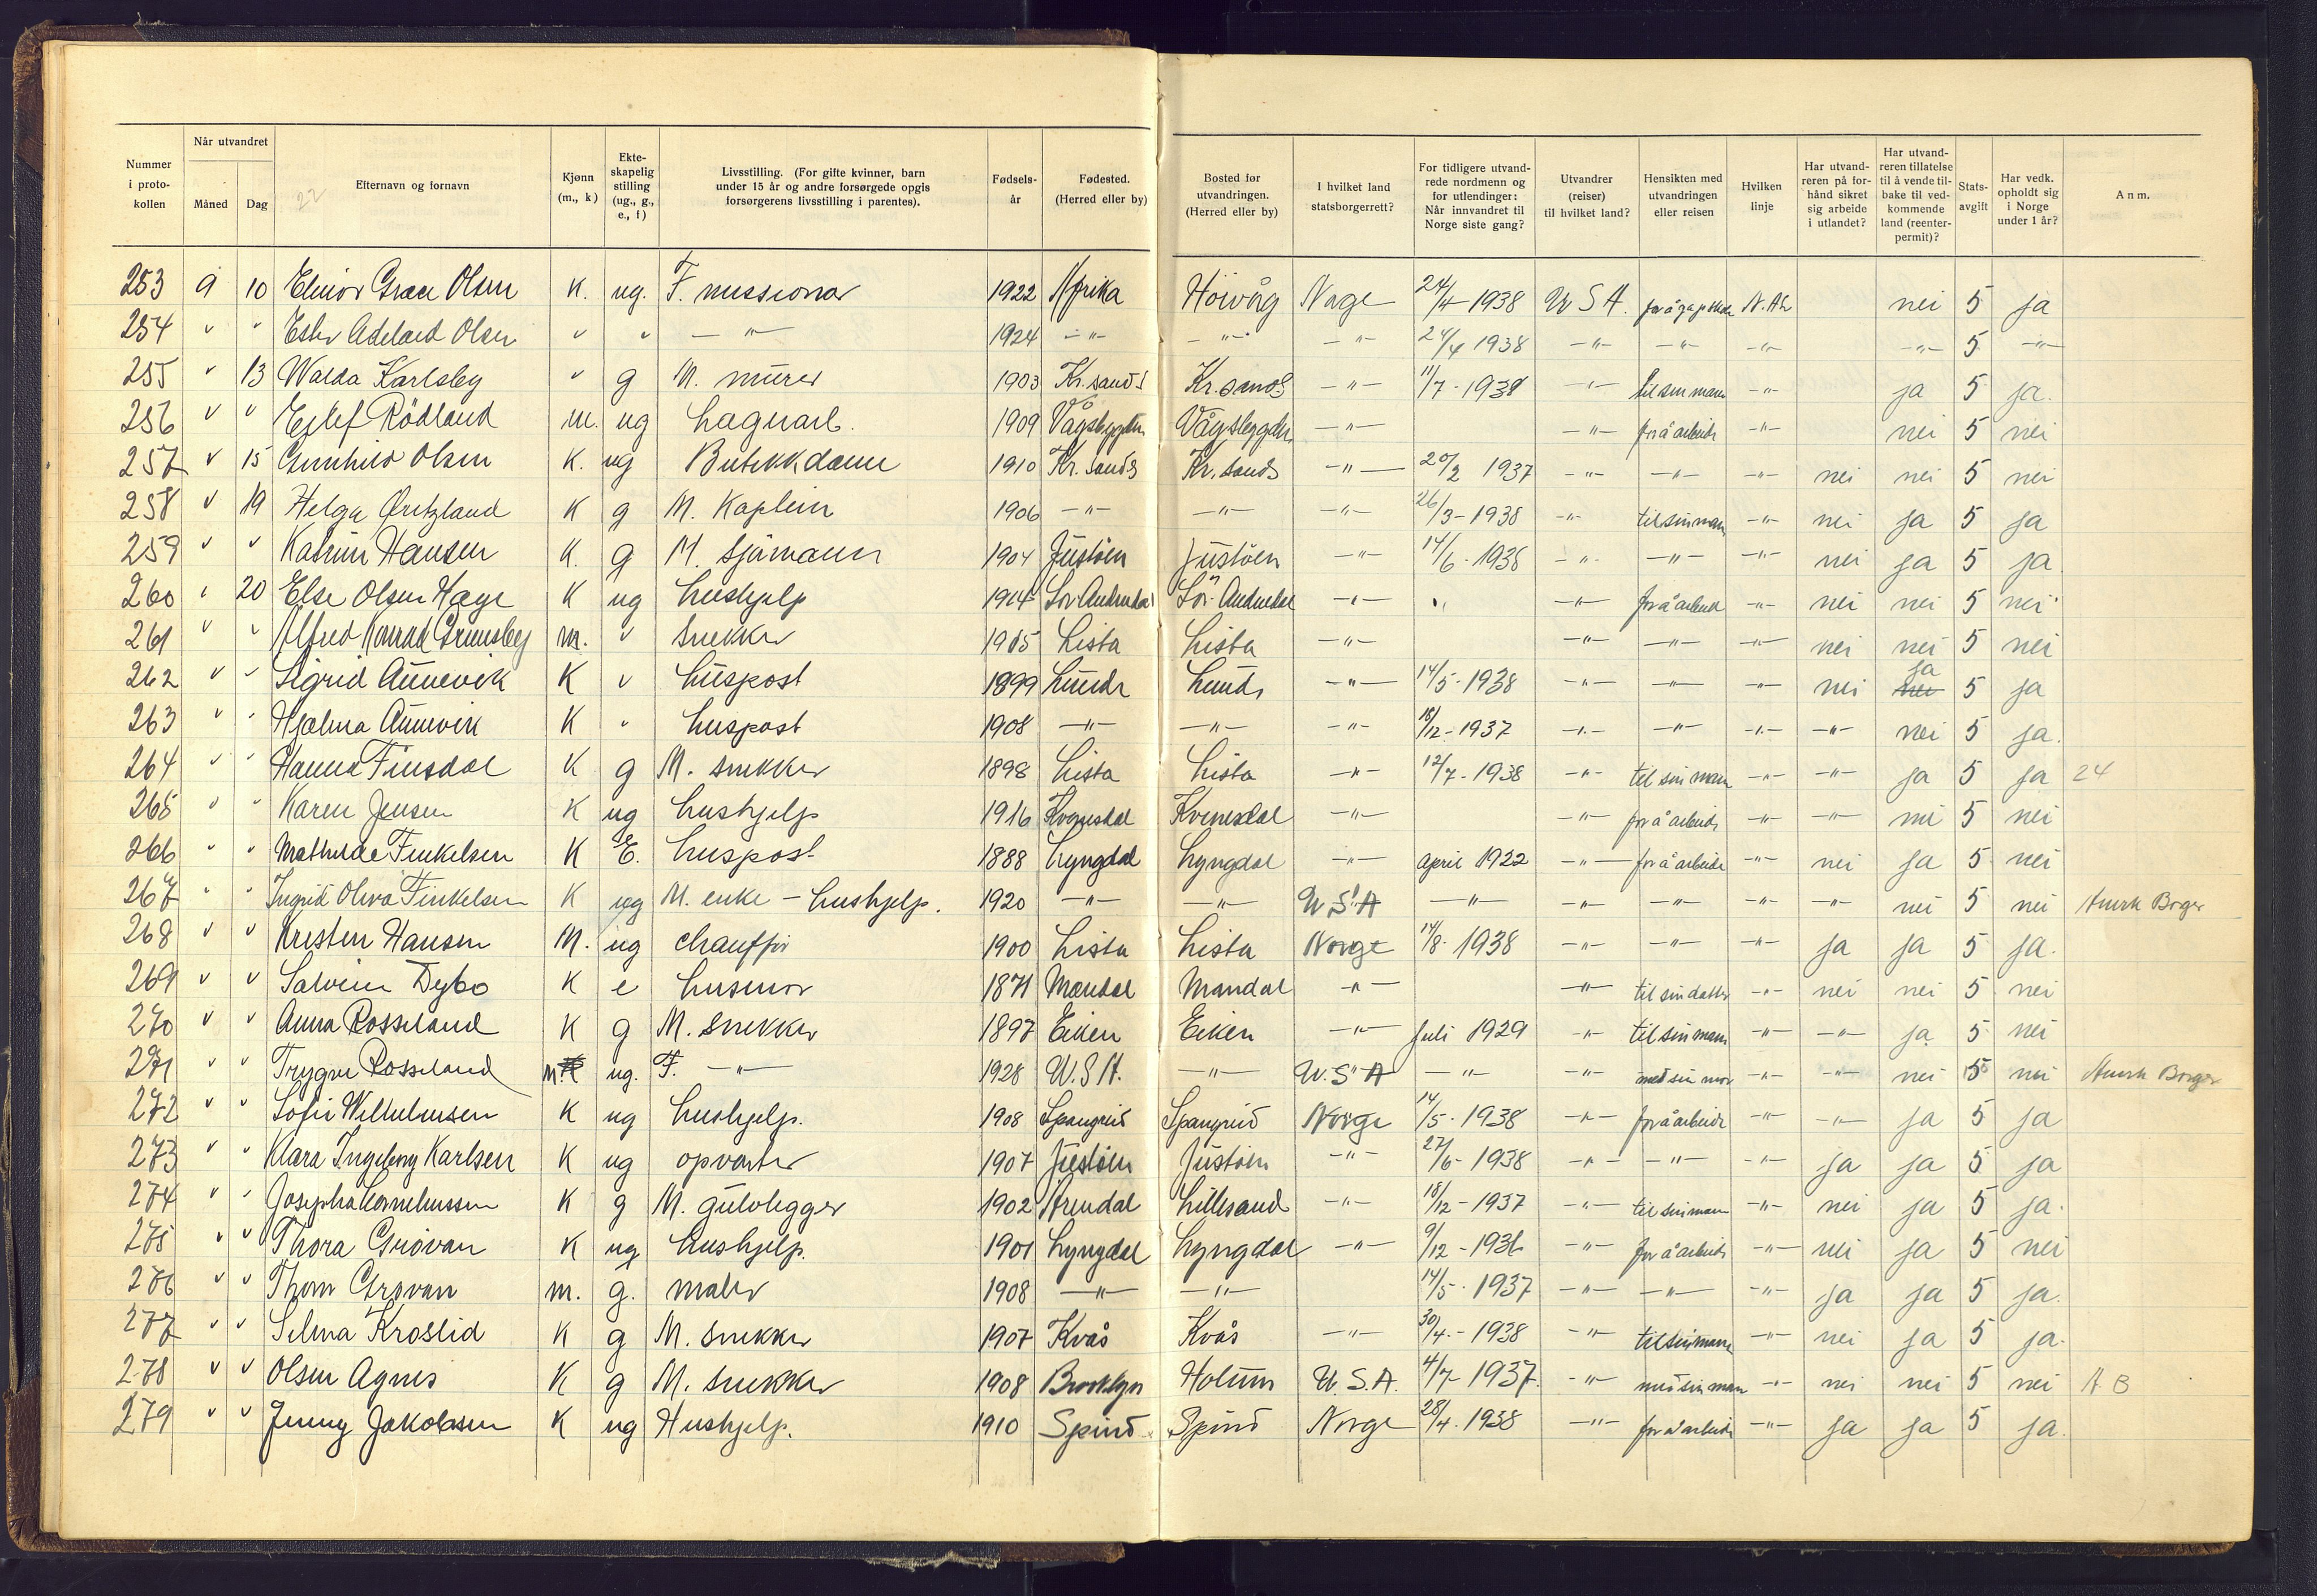 Nummer i proto- kollen | Når utvandret | Måned | Dag | Efternavn og fornavn | Kjønn (m., k) | Ekte- skapelig stilling (ug., g., e., f) | Livsstilling. (For gifte kvinner, barn under 15 år og andre forsørgede opgis forsørgerens livsstilling i parentes). | Fødsels- år | Fødested. (Herred eller by) | Bosted før utvandringen. (Herred eller by) | I hvilket land statsborgerrett? | For tidligere utvand- rede nordmenn og for utlendinger: Når innvandret til Norge siste gang? | Utvandrer (reiser) til hvilket land? | Hensikten med utvandringen eller reisen | Hvilken linje | Har utvand- reren på for- hånd sikret sig arbeide i utlandet? | Har utvand- reren tillatelse til å vende til- bake til ved- kommende land (reenter- permit)? | Stats- avgift | Har vedk. opholdt sig i Norge under 1 år? | Anm.
22
253 9 10 Elinor Grace Olsen K. ug. F. missionær 1922 Afrika Höivåg Norge 24/4-1938 U S A. N.A.L nei 5 ja
254 " " Ester Adelaid Olsen " " -"- 1924 -"- -"- -"- 24/4 1938 -"- -"- -"- -"- 5 -"-
255 " 13 Walda Karlsby " g M. murer 1903 Kr.sands Kr.sands -"- 11/7-1938 -"- til sin mann -"- ja 5 ja.
256 " " Eilef Rödland m. ug Lagerarb. 1909 Vågsbygden Vågsbygden -"- -"- for å arbeide -"- nei 5 nei
257 " 15 Gunhild Olsen K. ug Butikkdame 1910 Kr.sands Kr.sands -"- 20/2 1937 -"- -"- -"- nei nei 5 nei
258 " 19 Helga Øritzland K g M. Kaptein 1906 -"- -"- -"- 26/3-1938 -"- til sin man -"- nei ja 5 ja
259 " " Katrin Hansen K. g M. sjömann 1904 Justöen Justöen -"- 14/6-1938 -"- -"- -"- nei ja 5 ja.
260 " 20 Else Olsen Haye K ug hushjelp 1914 Sör-Audnedal Sör-Audnedal -"- " -"- for å arbeid -"- nei nei 5 nei
261 " " Alfred Konrad Grimsby m. " snekker 1905 Lista Lista -"- -"- -"- -"- nei nei 5 nei
262 " " Sigrid Aunevik K " huspost 1899 Lunde Lunde -"- 14/5-1938 -"- -"- -"- nei ja 5 ja
263 " " Hjelma Aunevik K " huspost 1908 -"- -"- -"- 18/12-1937 -"- -"- -"- -"- nei 5 ja.
264 " " Hanna Finsdal K g M. snekker 1898 Lista Lista -"- 12/7-1938 -"- til sin man -"- -"- ja 5 ja 24
265 " " Karen Jensen K ug hushjelp 1916 Kvinesdal Kvinesdal -"- -"- for å arbeide -"- -"- nei 5 nei
266 " " Mathilde Finkelsen K E. huspost 1888 Lyngdal Lyngdal -"- april 1922 -"- for å arbeide -"- nei ja 5 nei
267 " " Ingrid Oliva Finkelsen K ug M. enke - hushjelp. 1920 -"- -"- U S A -"- -"- -"- -"- -"- nei 5 nei Amrk Borger
268 " " Kristen Hansen M. ug chauffør 1900 Lista Lista Norge 14/8-1938 -"- -"- -"- ja ja 5 ja.
269 " " Salvine Dybo K e husmor 1871 Mandal Mandal -"- -"- til sin datter -"- nei nei 5 nei
270 " " Anna Rosseland K g M. snekker 1897 Eiken Eiken -"- Juli 1929 -"- til sin mann -"- -"- ja 5 nei
271 " " Trygve Rosseland m ug. F. -"- 1928 U.S.A. -"- U.S A -"- -"- med sin mor -"- -"- nei 5 nei Amrk Borger
272 " " Sofie Wilhelmsen K ug hushjelp. 1908 Spangreid Spangreid Norge 14/5-1938 -"- for å arbeide -"- -"- ja 5 ja
273 " " Klara Ingeborg Karlsen K ug opvarter 1907 Justöen Justöen -"- 27/6-1938 -"- -"- -"- ja ja 5 ja
274 " " Josepha Corneliussen K g M. gulvlegger 1902 Arendal Lillesand -"- 18/12-1937 -"- til sin mann -"- nei ja 5 ja.
275 " " Thora Grövan K ug hushjelp. 1901 Lyngdal Lyngdal -"- 9/12-1936 -"- for å arbeide -"- nei ja 5 nei
276 " " Thom Grövan m. g. maler 1908 -"- -"- 14/5-1937 -"- -"- -"- ja ja 5 ja.
277 " " Selma Kroslid K g M. snekker 1907 Kvås Kvås -"- 30/4-1938 -"- til sin mann -"- nei ja 5 ja.
278 " " Olsen Agnes K g M. snekker 1908 Brooklyn Holum U.S.A. 4/7-1937. -"- med sin man -"- nei nei 5 nei A B
279 " " Jenny Jakobsen K ug Hushjelp. 1910 Spind Spind Norge 28/4-1938 -"- for å arbeide -"- ja ja 5 ja.